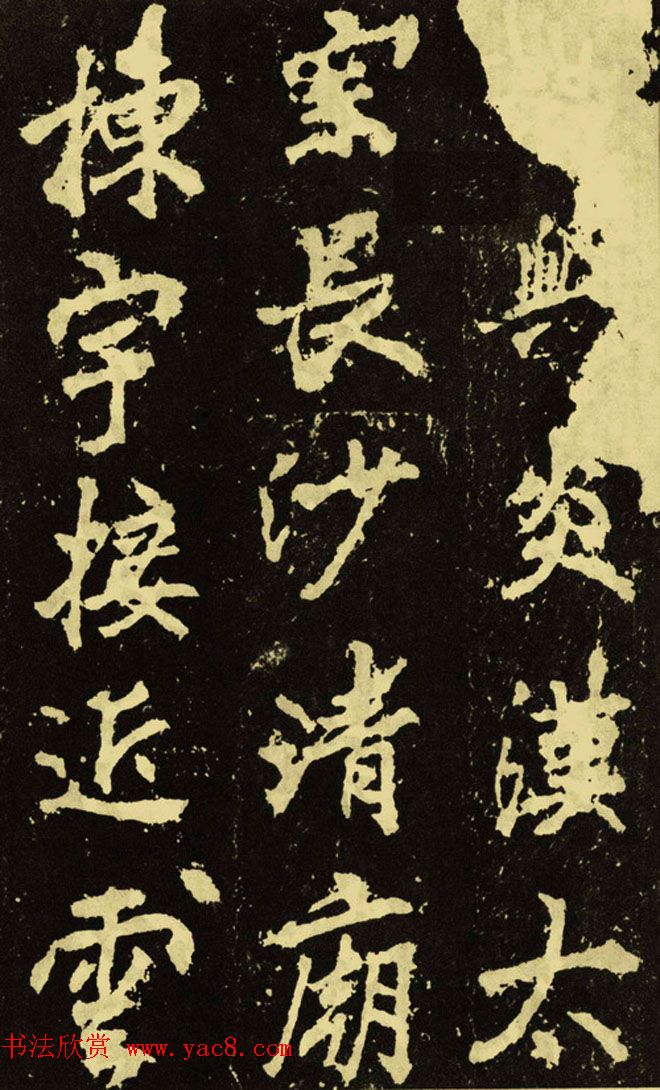 與炎漢太
宗長沙清廟
棟宇接近雲
书法欣赏 www.yac8.com